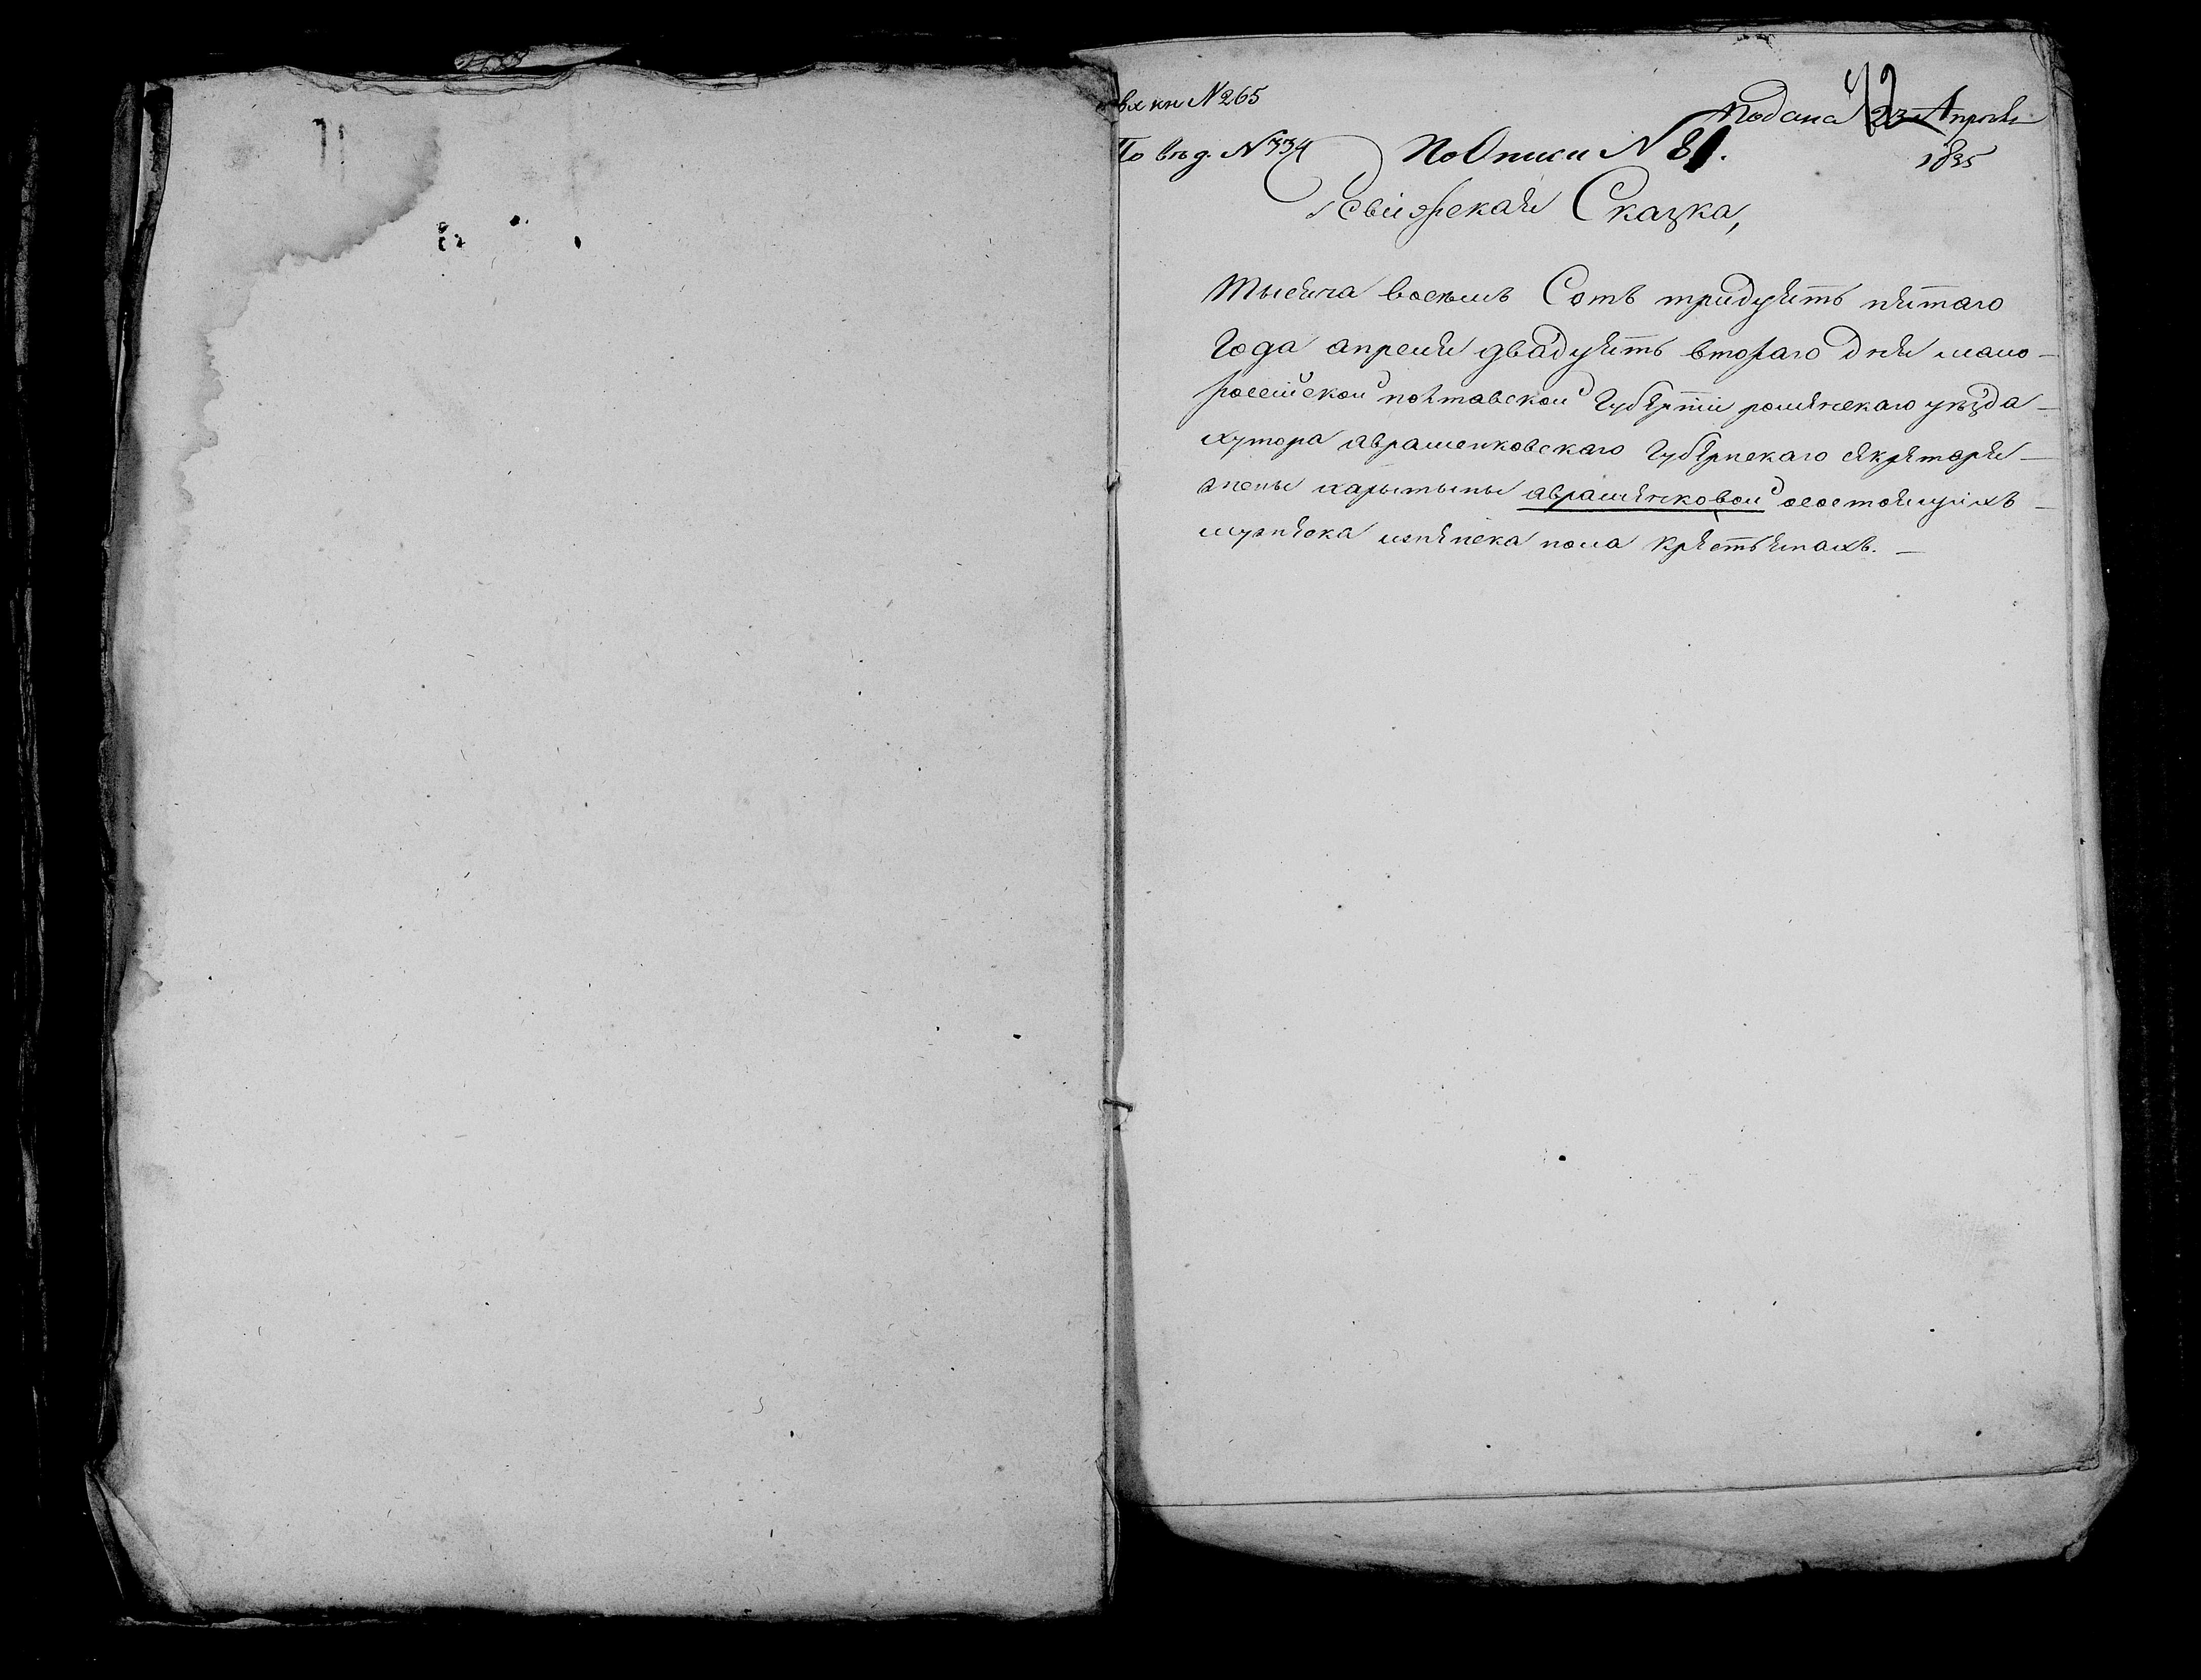 вх кн N 265
42
Подана 23 Апреля
По вѣд. N 334
По Описи N 81.
1835
Ревизская Сказка,
тысяча восемь Сотъ тридцять пятаго
Года апреля двадцять втораго дня мало-
российской полтавской Губернии роменскаго уѣзда
хутора аврашенковскаго Губернскаго секретаря
жены харытыны аврашенковой осостоящихъ
мужеска иженска пола крестьянахъ.